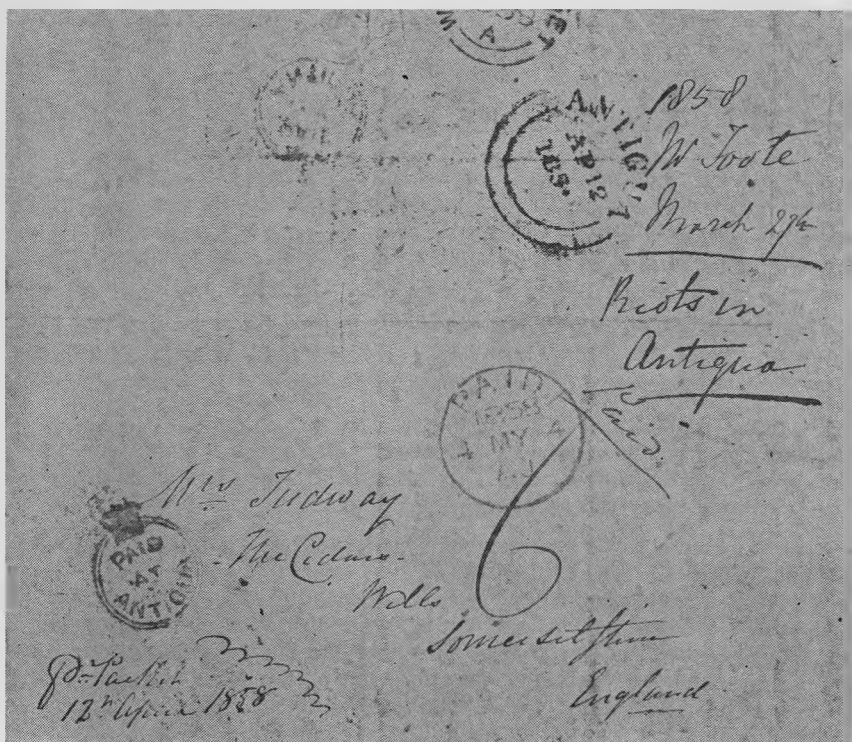 A
ANTIGUA
AP 12
185
1858
Mr Foote
March 27th
Riots in
Antigua
PAID
1858
4 MY 4
Paid
6
Mrs Tudway
The Cedars
Wells
Somersetshire
England
PAID
AT
ANTIGUA
Pr Packet
12th April 1858